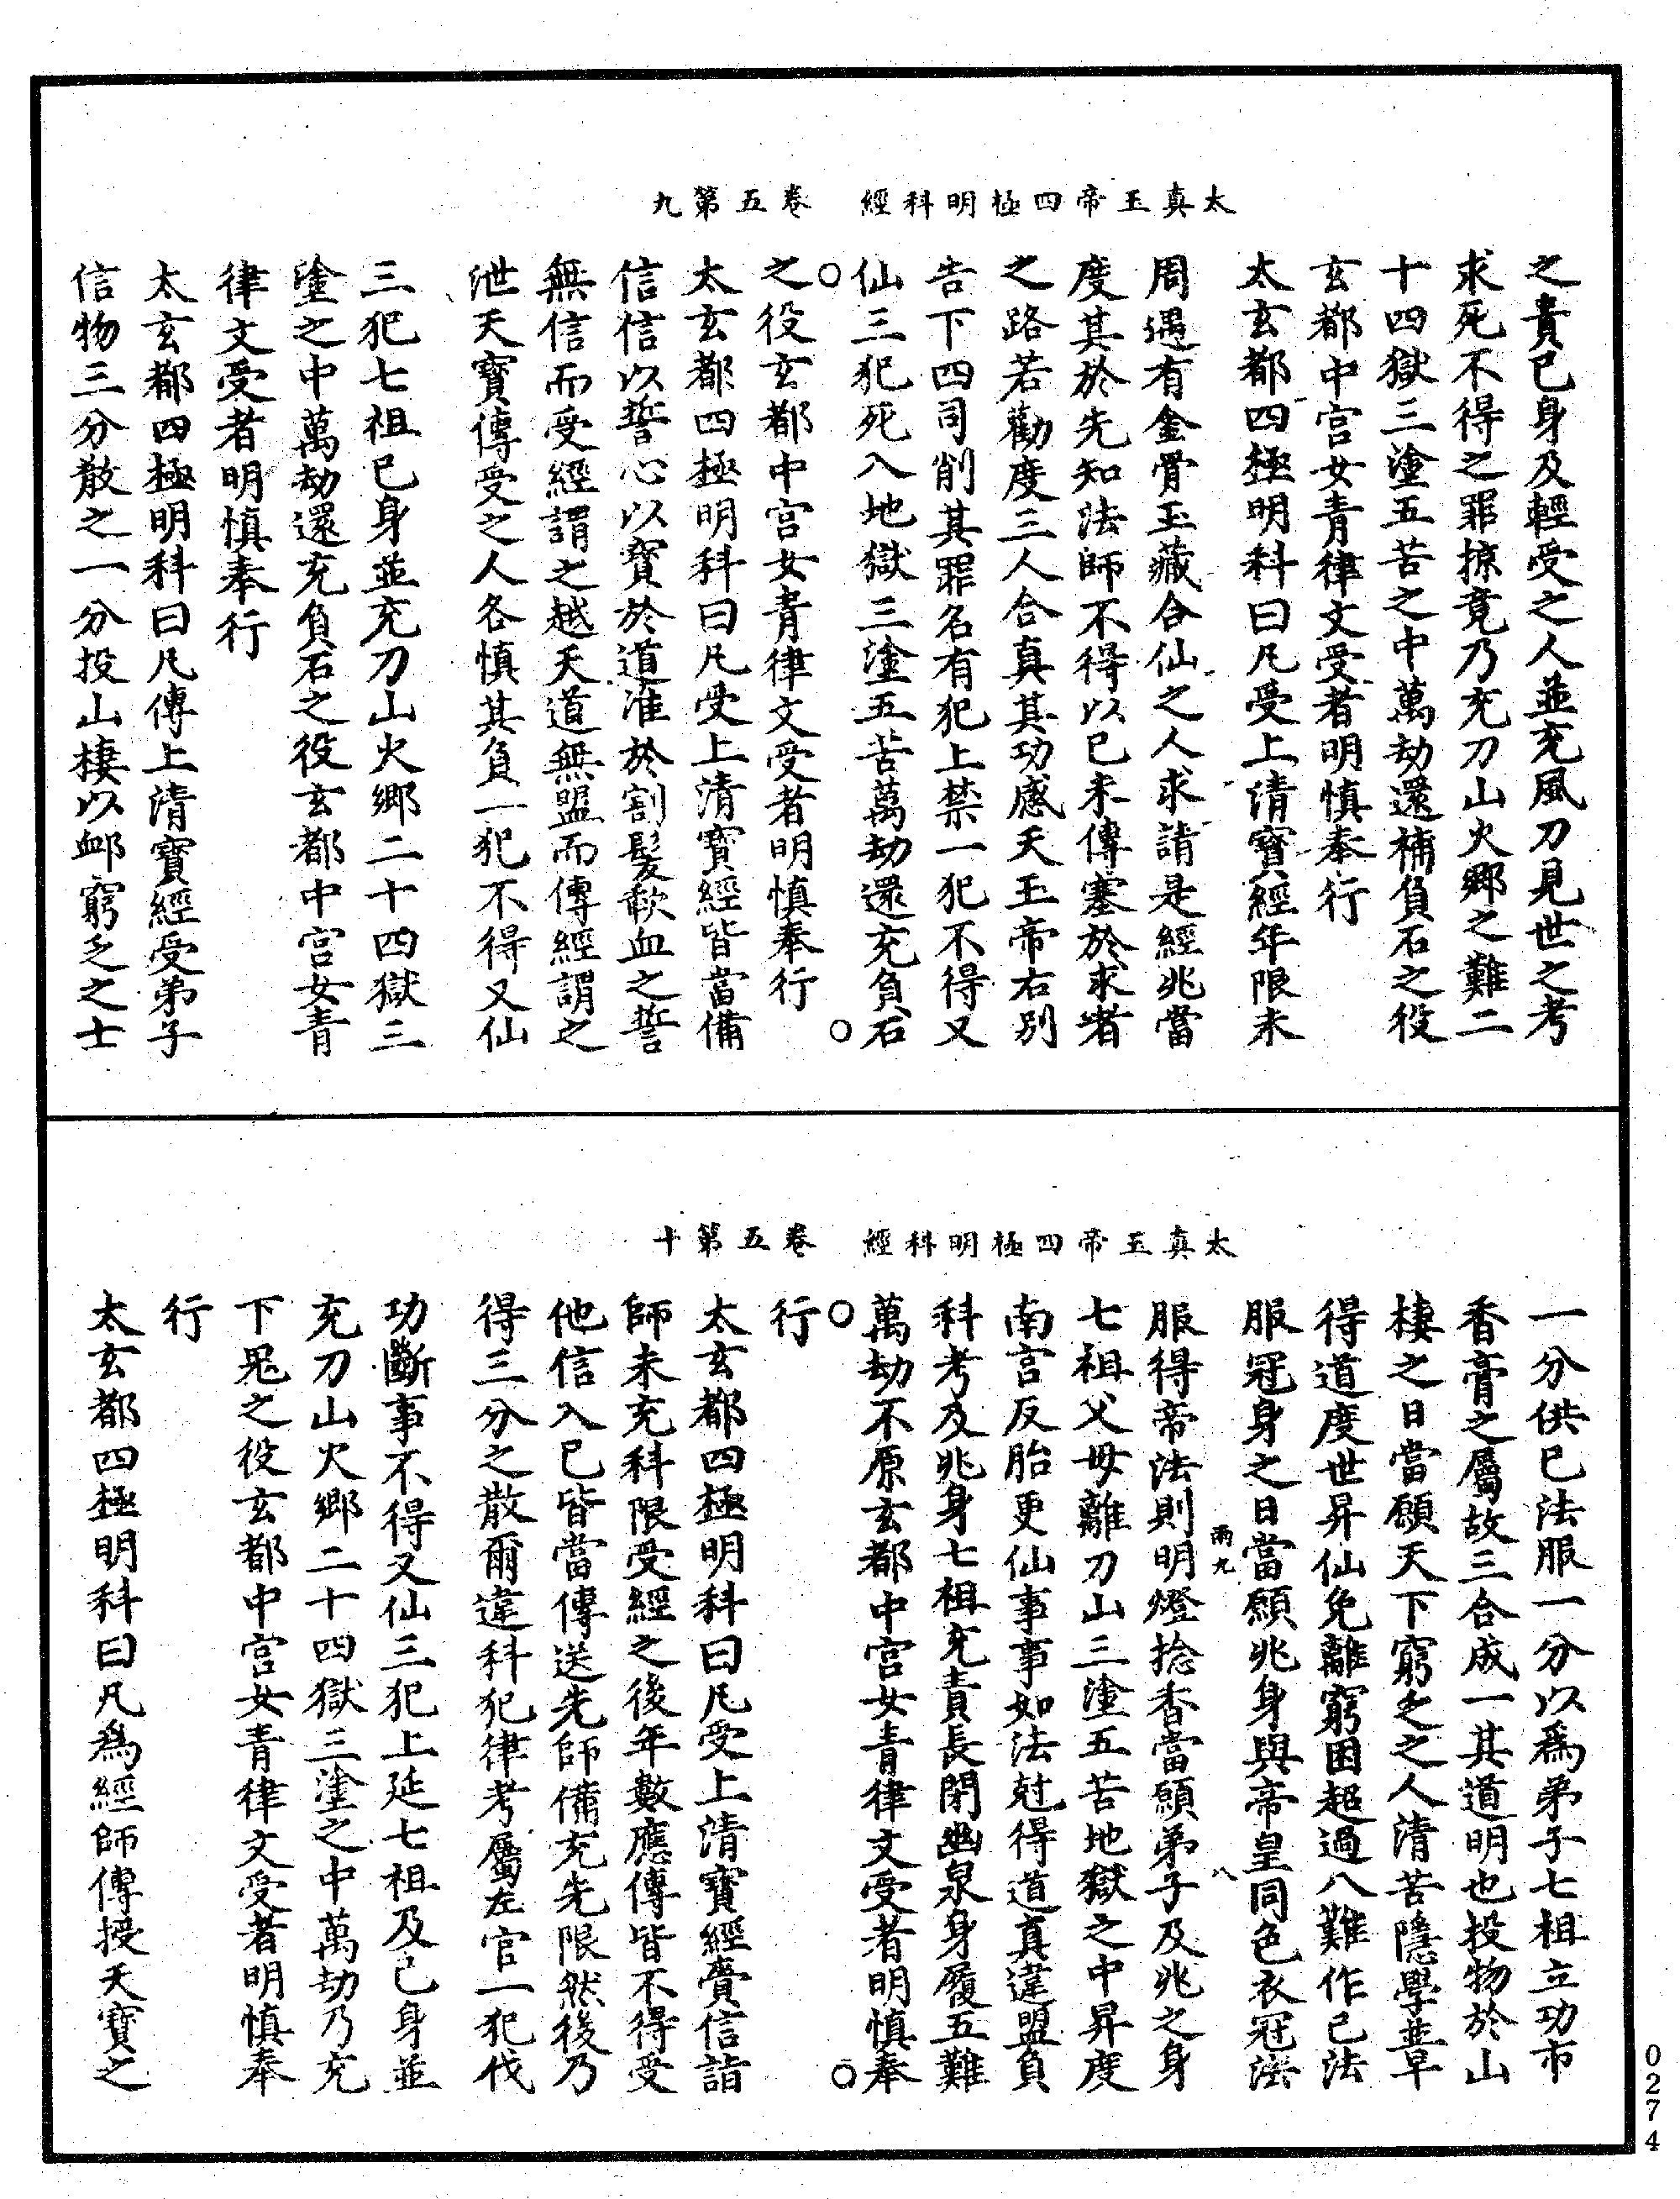 太真玉帝四極明科經　卷五第九
之責已身及輕受之人並充風刀見世之考
求死不得之罪掠竟乃充刀山火鄉之難二
十四獄三塗五苦之中萬劫還補負石之役
玄都中宮女青律文受者明慎奉行
太玄都四極明科曰凡受上清寶經年限未
周遇有金骨玉藏合仙之人求請是經兆當
度其於先知法師不得以已未傳塞於求者
之路若勸度三人合真其功感天玉帝右別
告下四司削其罪名有犯上禁一犯不得又
仙三犯死入地獄三塗五苦萬劫還充負石
之役玄都中宮女青律文受者明慎奉行
太玄都四極明科曰凡受上清寶經皆當備
信信以誓心以寶於道准於割髮歃血之誓
無信而受經謂之越天道無盟而傳經謂之
泄天寶傳受之人各慎其負一犯不得又仙
三犯七祖已身並充刀山火鄉二十四獄三
塗之中萬劫還充負石之役玄都中宮女青
律文受者明慎奉行
太玄都四極明科曰凡傳上清寶經受弟子
信物三分散之一分投山棲以卹窮乏之士
太真玉帝四極明科經　卷五第十
一分供已法服一分以為弟子七祖立功市
香膏之屬故三合成一其道明也投物於山
棲之日當願天下窮乏之人清苦隱學並早
得道度世昇仙免離窮困超過八難作已法
服冠身之日當願兆身與帝皇同色衣冠法
雨九　八
服得帝法則明燈捻香當願弟子及兆之身
七祖父母離刀山三塗五苦地獄之中昇度
南宮反胎更仙事事如法尅得道真違盟負
科考及兆身七祖充責長閉幽泉身履五難
萬劫不原玄都中宮女青律文受者明慎奉
行
太玄都四極明科曰凡受上清寶經賷信詣
師未充科限受經之後年數應傳皆不得受
他信入已皆當傳送先師備充先限然後乃
得三分之散爾違科犯律考屬左官一犯伐
功斷事不得又仙三犯上延七祖及已身並
充刀山火鄉二十四獄三塗之中萬劫乃充
下鬼之役玄都中宮女青律文受者明慎奉
行
太玄都四極明科曰凡為經師傳授天寶之
0274